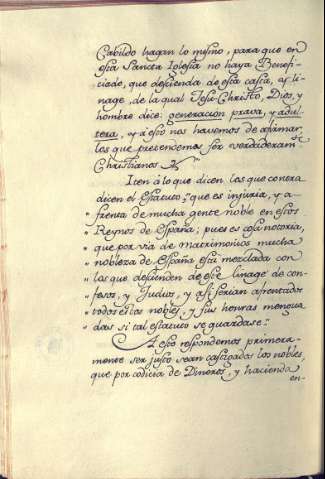 Cabildo hagan lo mesmo, para que en
esta Sancta Iglesia no haya Benefi-
ciado, que descienda de esta casta, y li-
nage, de la qual Jesu-Christo, Dios, y
hombre dice: generacion prava, y adul-
tera, y à esto nos havemos de afirmar
los que pretendemos ser verdaderam.te
Christianos
Iten à lo que dicen los que contra
dicen el Estatuto, "que es injuria, y a-
" frenta de mucha gente noble en estos
" Reynos de España; pues es cosa notoria,
" que por via de matrimonios mucha
" nobleza de España està mezclada con
" los que descienden de este linage de con-
" fesos, y Judios, y assi serian afrentados
" todos estos nobles, y sus honras mengua
" das si tal estatuto se guardase:"
A esto respondemos primera-
mente ser justo sean castigados los nobles,
que por codicia de Dineros, y hacienda
en-